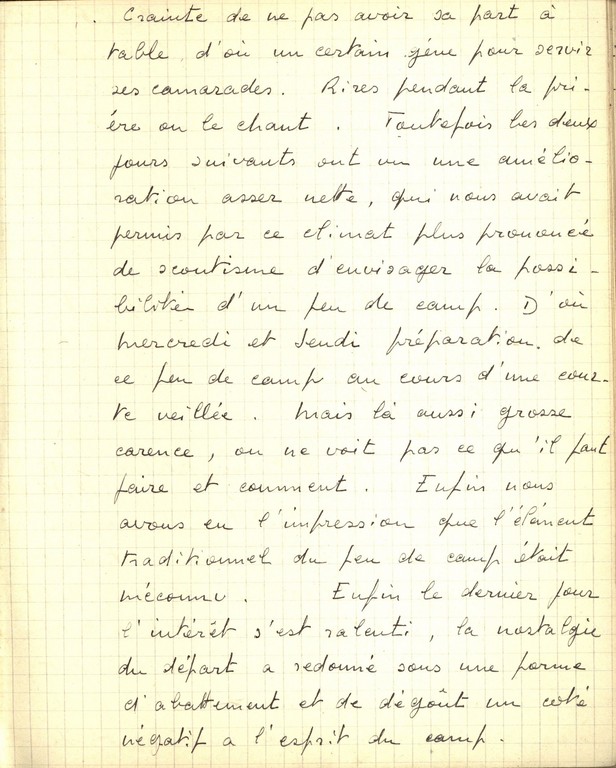 Crainte de ne pas avoir sa part à
table d'où un certain gêne pour servir
ses camarades. Rires pendant la pri-
ère ou le chant. Toutefois les deux
jours suivants ont vu une amélio-
ration assez nette, qui nous avait
permis par ce climat plus prononcé
de scoutisme d'envisager la possi-
bilitée d'un feu de camp. D'où
mercredi et Jeudi préparation de
ce feu de camp au cours d'une cour-
te veillée. Mais là aussi grosse
carence, on ne voit pas ce qu'il faut
faire et comment. Enfin nous
avons eu l'impression que l'élément
traditionnel du feu de camp était
méconnu. Enfin le dernier jour
l'intérêt s'est ralenti, la nostalgie
du départ a redonné sous une forme
d'abattement et de dégoût un coté
négatif a l'esprit du camp.